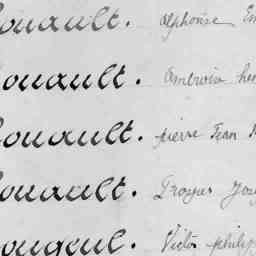 ouault. Alphonse Em
ouault. Ambroise hen
ouault. pierre Jean
ouault. Prosper
ougeul. Victor philip